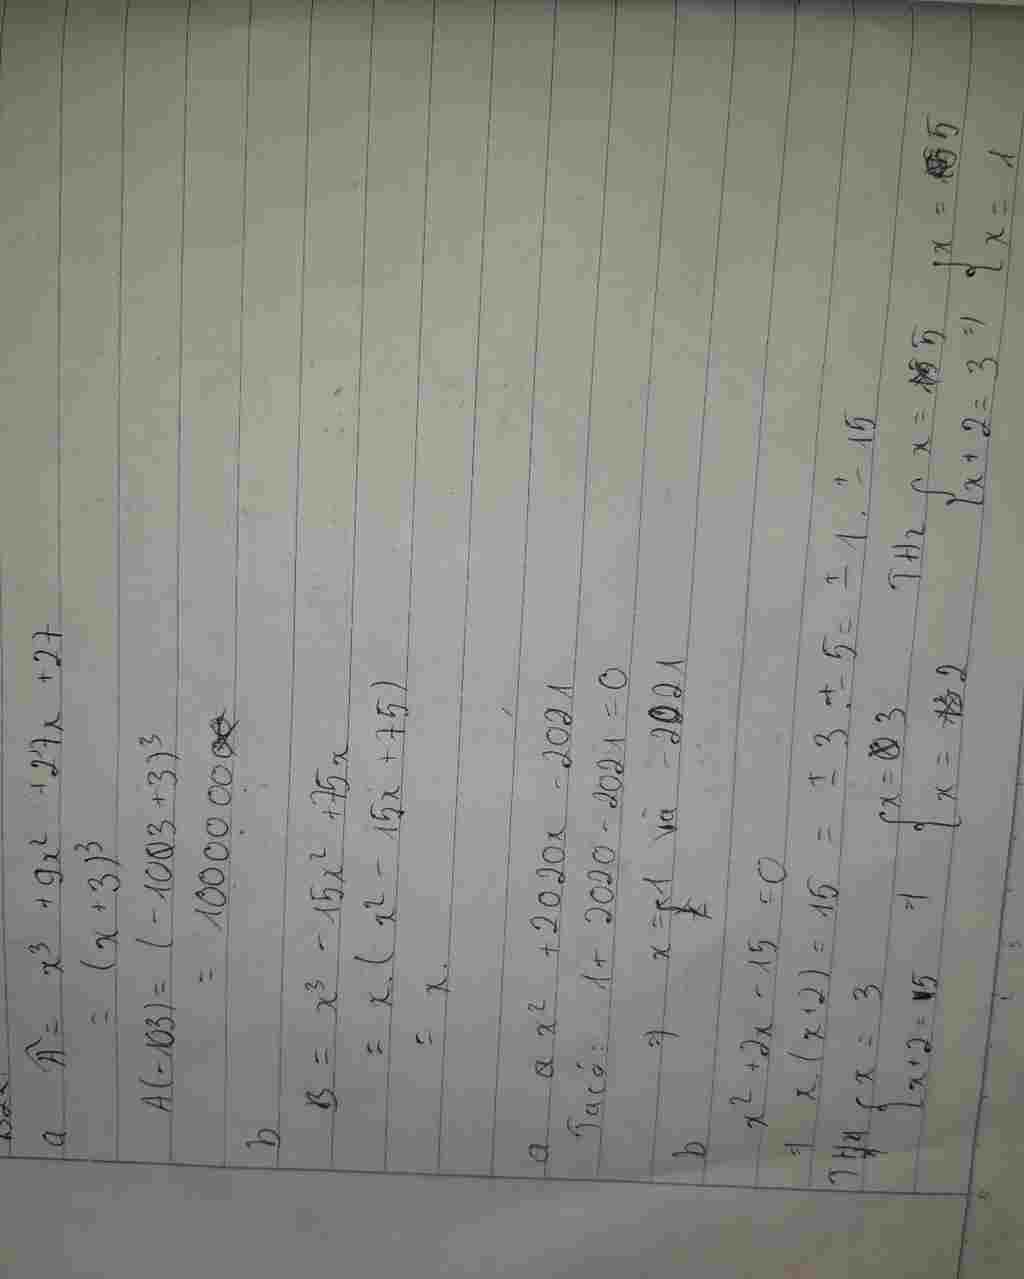 a A = x³ + 9x² + 27x + 27
= (x + 3)³
A(-103) = (-103 + 3)³
= 1000000
b
B = x³ - 15x² + 75x
= x.(x² - 15x + 75)
= x.
a a x² + 2020x - 2021
Ta có: 1 + 2020 - 2021 = 0
=> x = 1 và - 2021
b
x² + 2x - 15 = 0
=> x.(x+2) = 15 = ± 3 . ± 5 = ± 1 . ± 15
TH1 { x = 3 { x = 3 TH2 { x = 5 { x = 5
{ x + 2 = 5 => { x = 2 { x + 2 = 3 => { x = 1